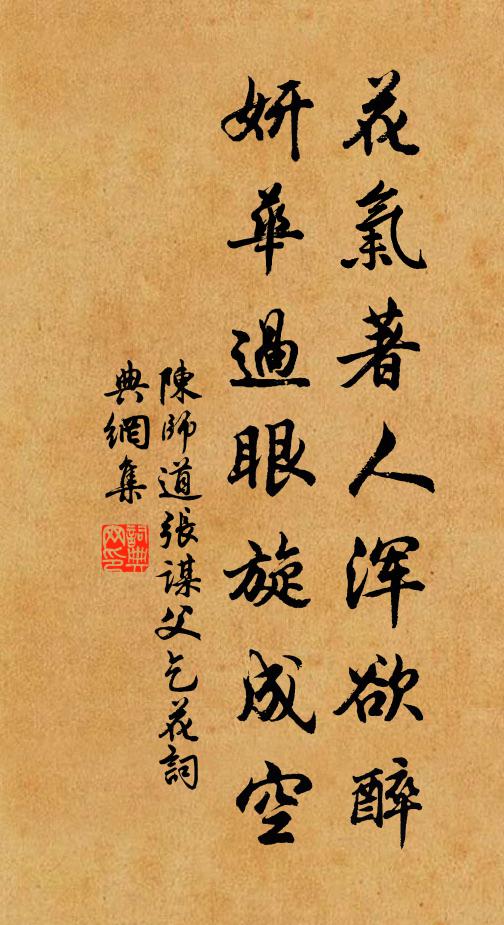 花氣著人浑欲醉
妍華過眼旋成空
陳師道張謀父乞花詞
典網集
詞典
网印